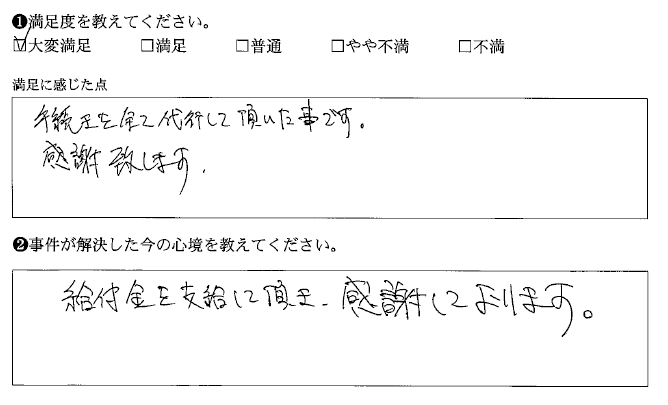 ❶満足度を教えてください。
☑大変満足 □満足 □普通 □やや不満 □不満
満足に感じた点
手続きを全て代行して頂いた事です。
感謝致します。
❷事件が解決した今の心境を教えてください。
給付金を支給して頂き、感謝しております。